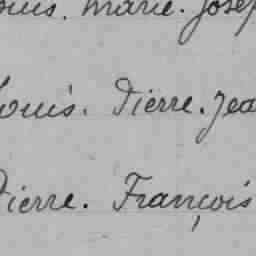 ouis. Marie. Josep
Louis. Pierre. Jea
Pierre. François